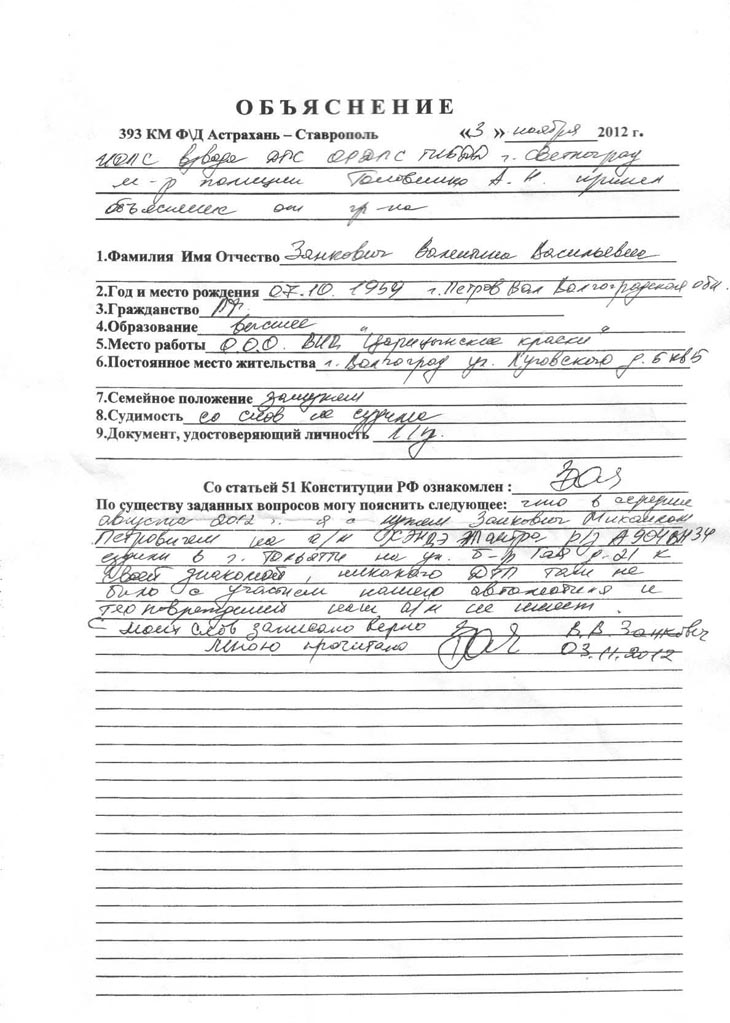 ОБЪЯСНЕНИЕ
393 КМ Ф\Д Астрахань – Ставрополь «3» ноября 2012 г.
взвода ДПС ОРДПС ГИБДД г. Светлоград
м-р полиции Головенко А. Н. принял
объяснение от гр-на
1.Фамилия Имя Отчество Занкович Валентина Васильевна
2.Год и место рождения 07.10. 1959 г. Петров Вал Волгоградской обл.
3.Гражданство РФ.
4.Образование высшее
5.Место работы О.О.О. ВИЦ "Царицынские краски"
6.Постоянное место жительства г. Волгоград ул. д. 5 кв 5
7.Семейное положение замужем
8.Судимость со слов не судима
9.Документ, удостоверяющий личность
Со статьей 51 Конституции РФ ознакомлен :
По существу заданных вопросов могу пояснить следующее: что в середине
августа 2012 г. я с мужем Занкович Михаилом
Петровичем на а/м
ездили в г. Тольятти на ул. б-р Гая д-21 к
своей знакомой, никакого ДТП там не
было с участием нашего автомобиля и
повреждений наш а/м не имеет.
С моих слов записано верно В.В. Занкович
Мною прочитано 03.11.2012